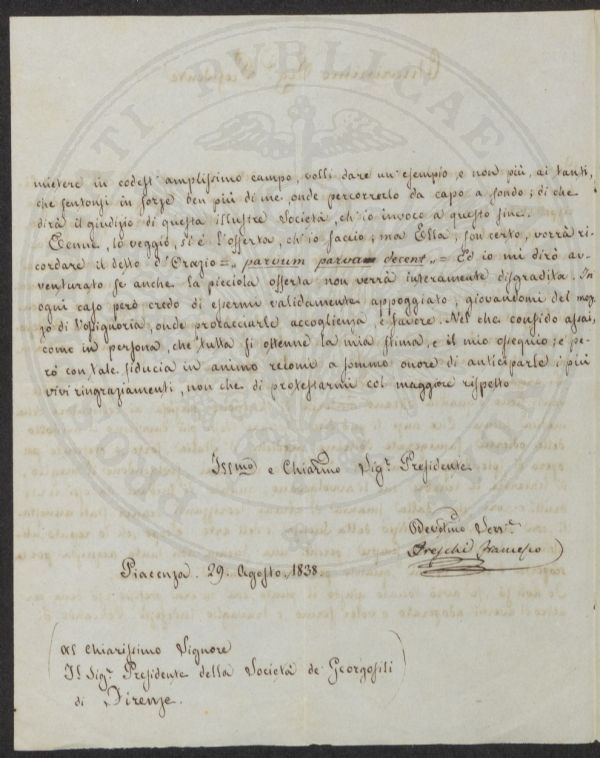 mietere in codest' amplissimo campo, volli dare un' esempio, e non più, ai tanti,
che sentonsi in forze ben più di me, onde percorrerlo da capo a fondo; di che
dirà il giudizio di questa illustre Società, ch'io invoco a questo fine.
Tenue, lo veggio, si è l'offerta, ch'io faccio; ma Ella, son certo, vorrà ri-
cordare il detto d'Orazio =„ parvum parvam decent „= Ed io mi dirò av-
venturato se anche la picciola offerta non verrà interamente disgradita. In
ogni caso però credo di essermi validamente appoggiato, giovandomi del mez-
zo di V.Osignoria, onde procacciarle accoglienza, e favore. Nel che confido assai,
come in persona, che tutta si ottenne la mia stima, e il mio ossequio; e pe-
rò con tale fiducia in animo recomi a sommo onore di anticiparle i più
vivi ringraziamenti, non che di protestarmi col maggiore rispetto
Illmo e Chiarmo Sigr. Presidente
Devotmo Servr.
Freschi Francesco
Piacenza 29. Agosto. 1838.
Al Chiarissimo Signore
Il Sigr. Presidente della Società de' Georgofili
di Firenze.